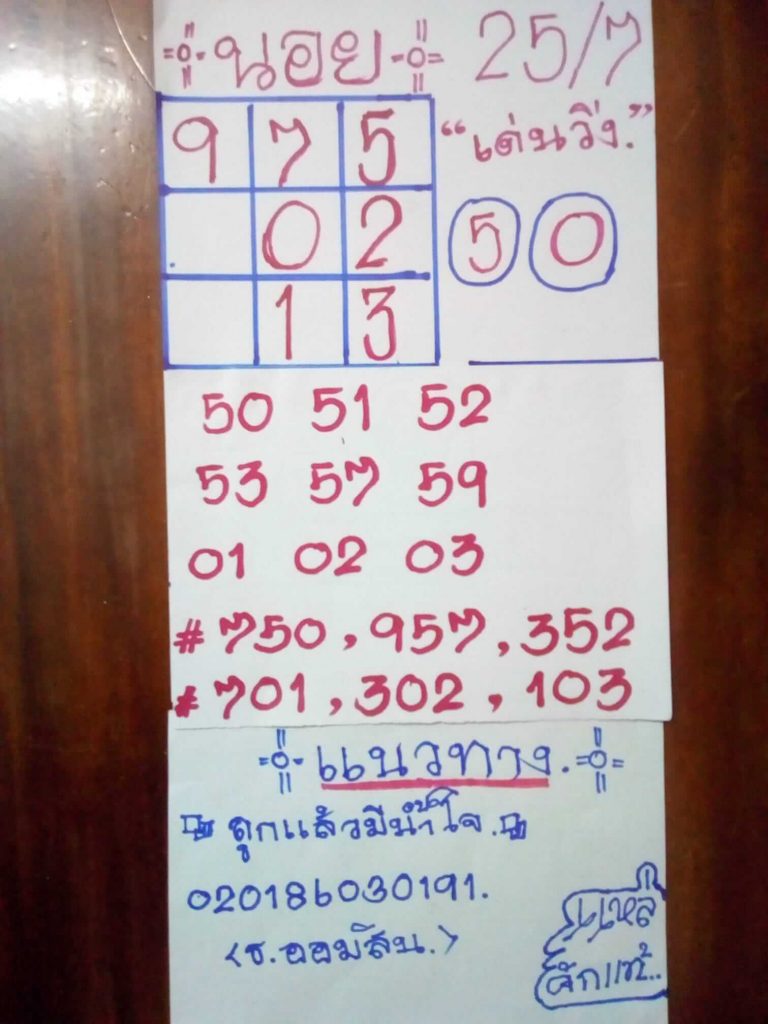 นอย 25/7
9 7 5 "เด่นวิ่ง."
0 2 5 0
1 3
50 51 52
53 57 59
01 02 03
# 750, 957, 352
# 701, 302, 103
แนวทาง.
ถูกแล้วมีน้ำใจ.
020186030191.
<ธ.ออมสิน.>